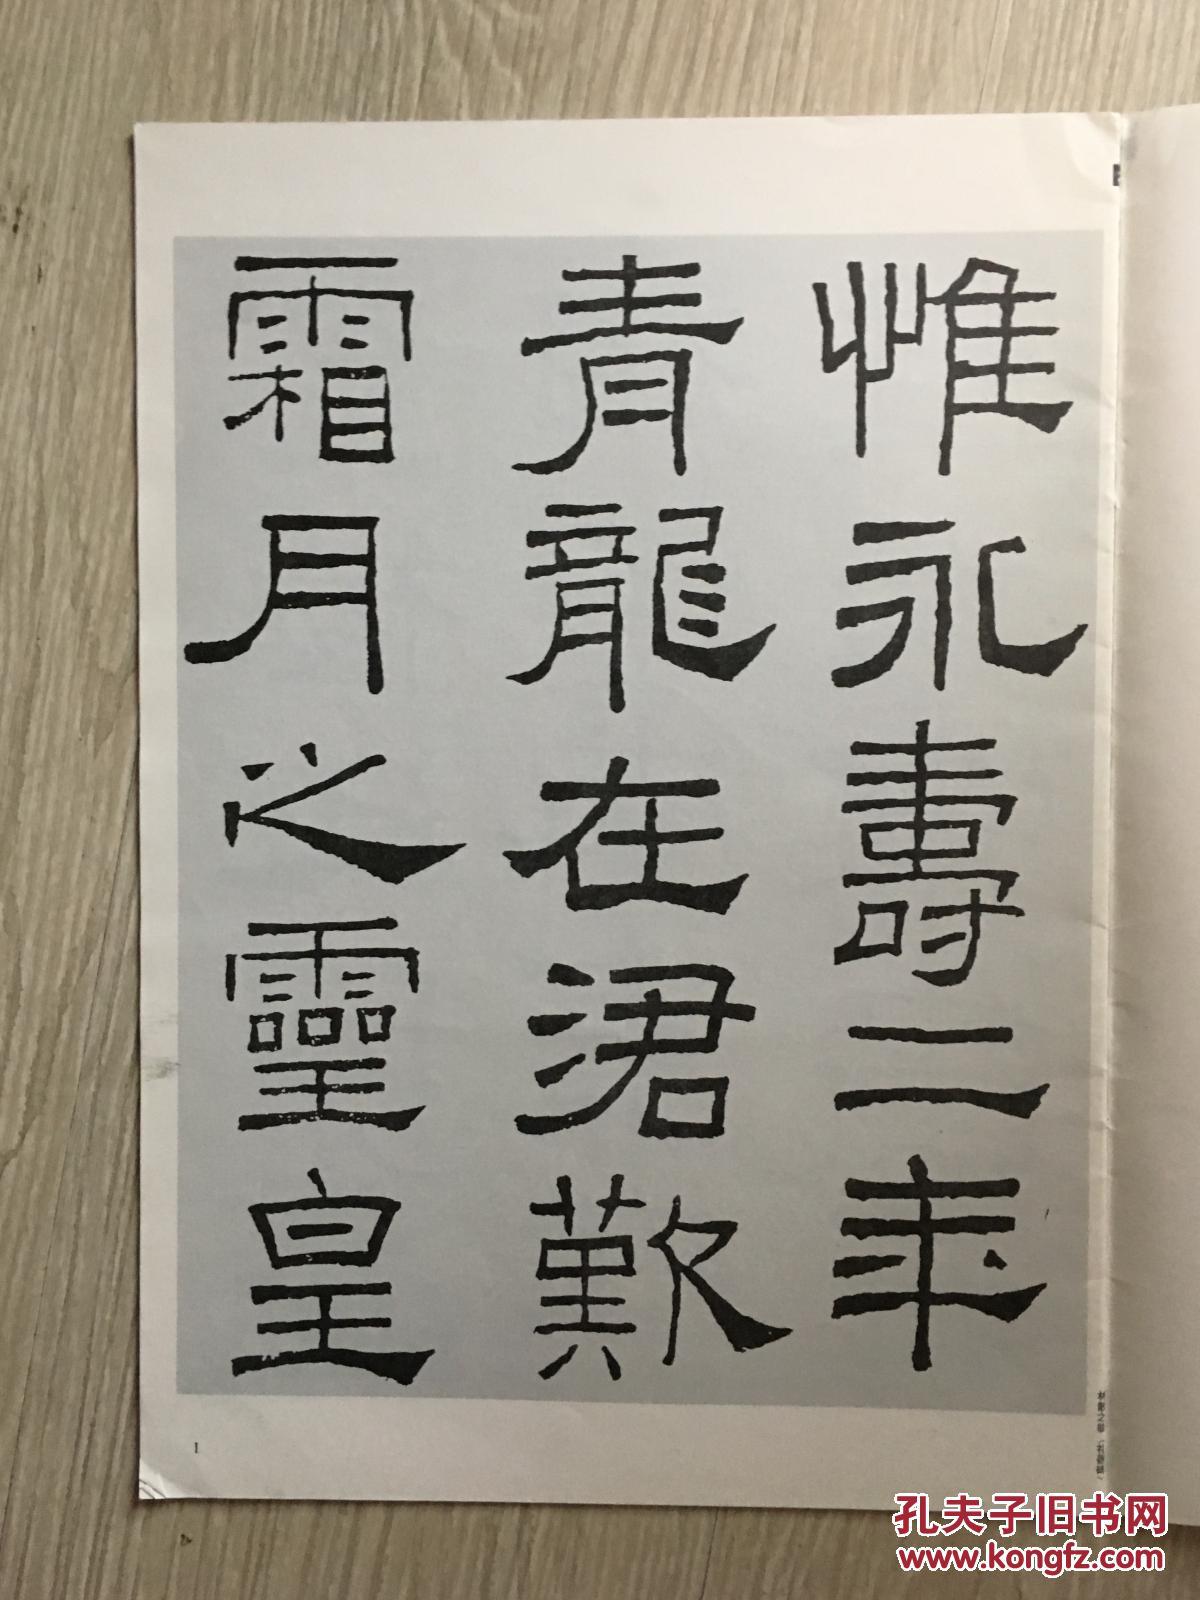 惟永壽二年
青龍在涒歎
霜月之靈皇
1
孔夫子旧书网
www.kongfz.com